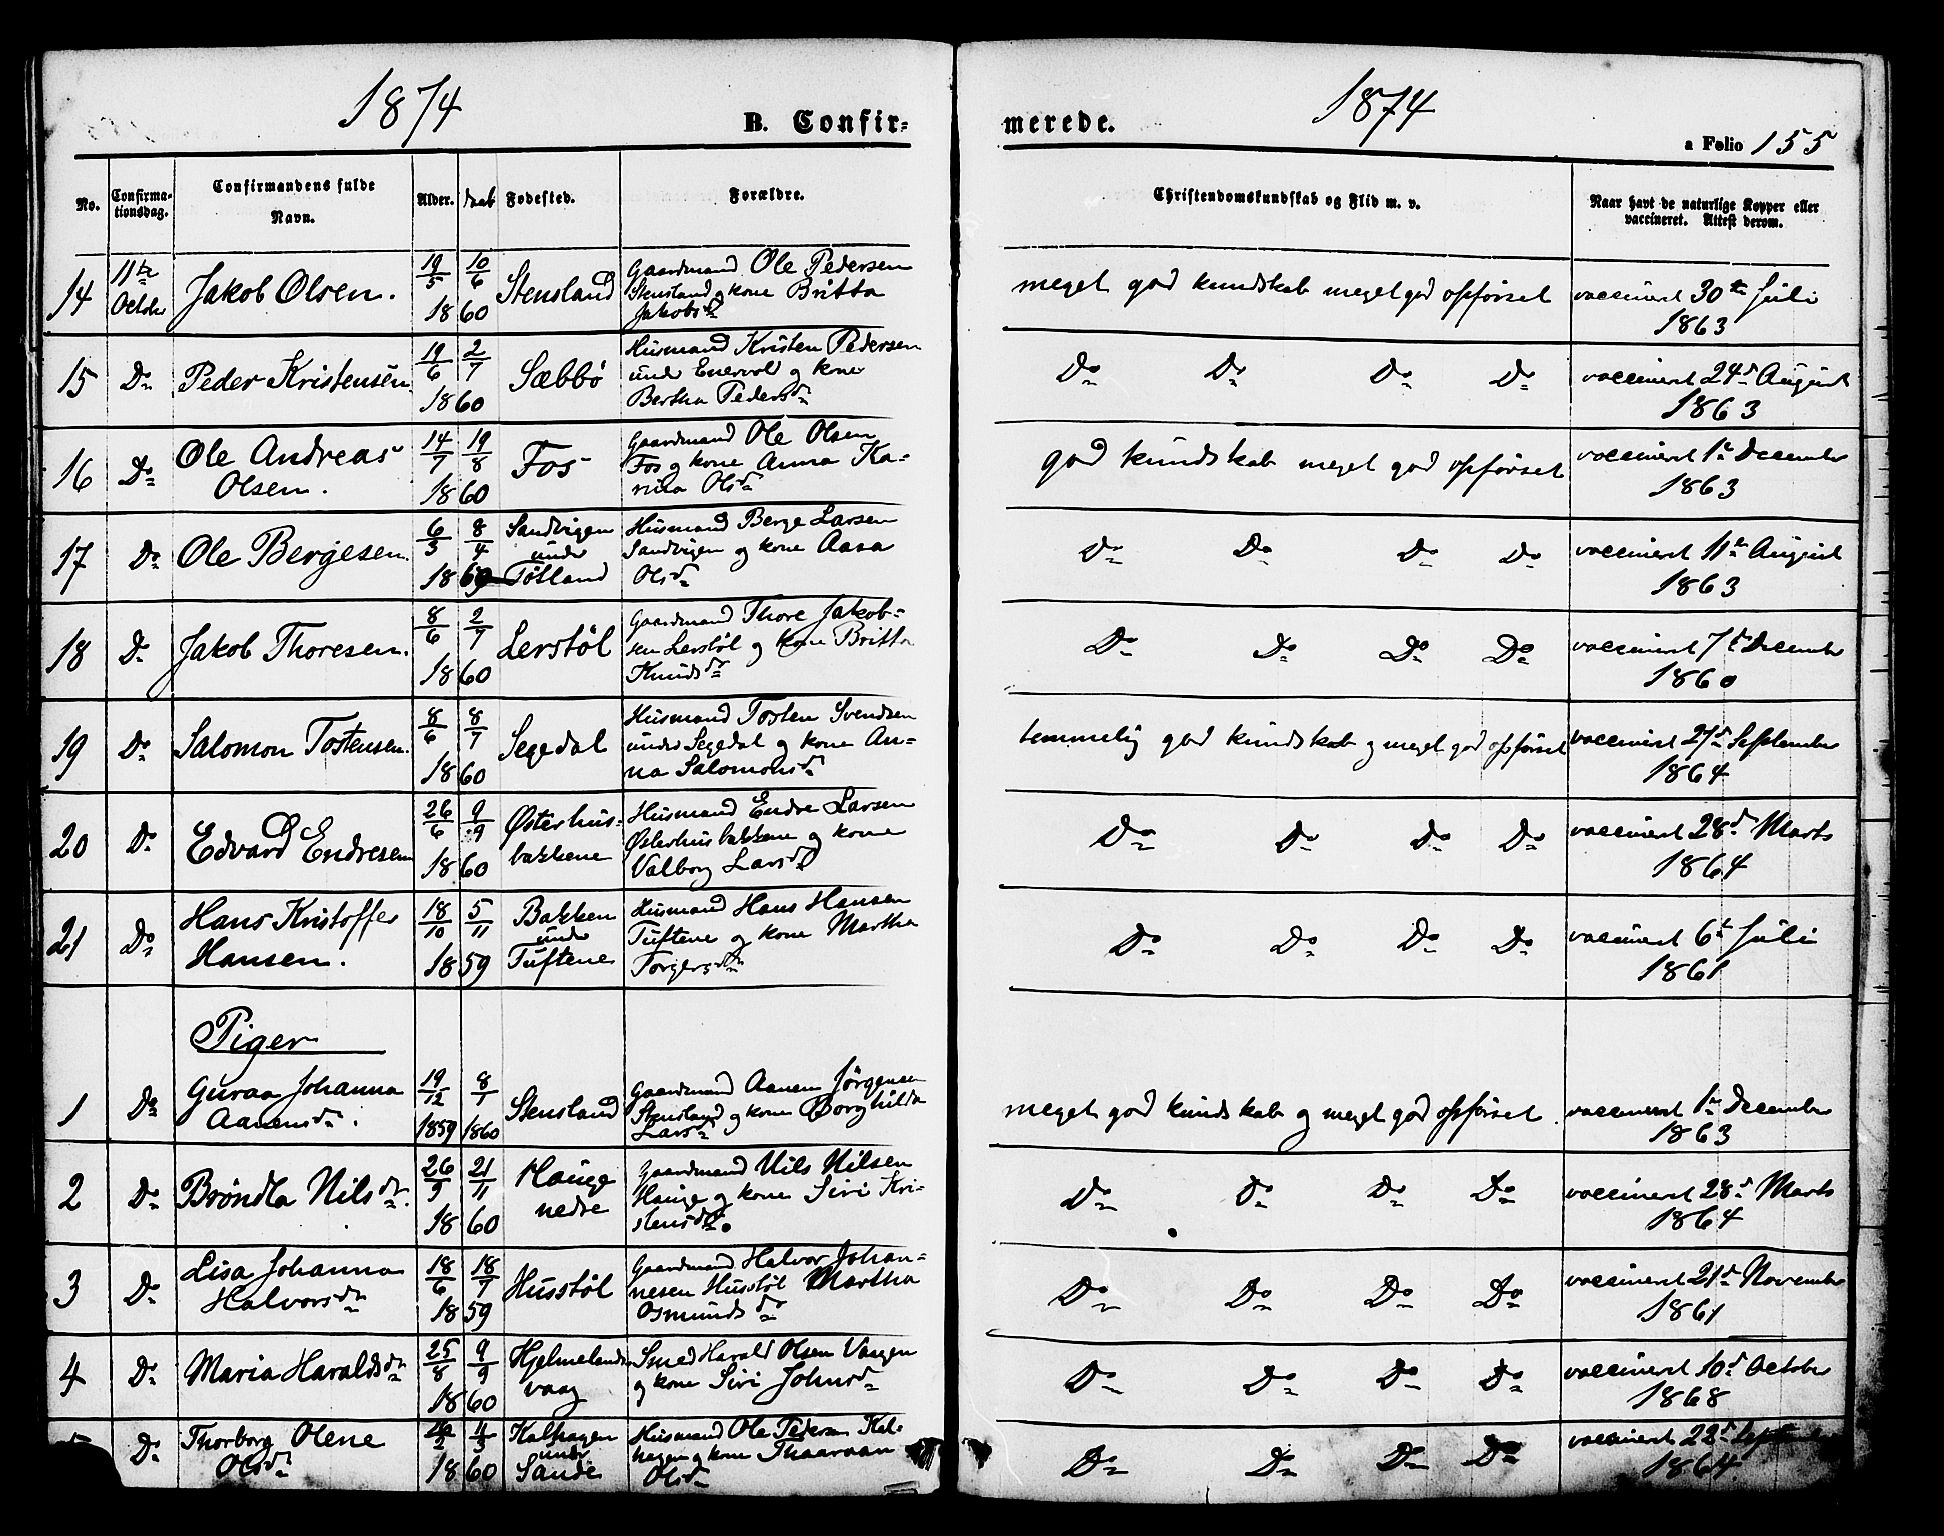 1874
B. Confir-
merede.
1874
a Folio 155
No.
Confirma-
tionsdag.
Confirmandens fulde
Navn.
Alder.
daab
Fødested.
Forældre.
Christendomskundskab og Flid m. v.
Naar havt de naturlige Kopper eller
vaccineret. Attest derom.
14
11te
Octobr
Jakob Olsen.
19/5 10/6
1860
Stensland
Gaardmand Ole Pedersen
Stensland og kone Britta
Jakobsdr
meget god kundskab meget god opførsel
vaccineret 30te Juli
1863
15
Do
Peder Kristensen
19/6 2/7
1860
Sæbbø
Husmand Kristen Pedersen
unde Enervold og kone
Bertha Pedersdr
Do Do Do Do
vaccineret 24d August
1863
16
Do
Ole Andreas
Olsen.
14/7 19/8
1860
Fos
Gaardmand Ole Olsen
Fos og kone Anna Ka-
rina Olsdr
god kundskab meget god opførsel
vaccineret 1te December
1863
17
Do
Ole Bergesen.
6/3 8/4
1860
Sandvigen
unde
Tøtland
Husmand Berge Larsen
Sandvigen og kone Aasa
Olsdr
Do Do Do Do
vaccineret 11te August
1863
18
Do
Jakob Thoresen.
8/6 2/7
1860
Lerstøl
Gaardmand Thore Jakob-
sen Lerstøl og kone Britta
Knudsdr
Do Do Do Do
vaccineret 7d December
1860
19
Do
Salomon Tostensen.
8/6 8/7
1860
Segedal
Husmand Tosten Svendsen
under Segedal og kone An-
na Salomonsdr
temmelig god kundskab og meget god opførsel
vaccineret 27d September
1864
20
Do
Edvard Endresen
26/6 9/9
1860
Østerhus-
bakkene
Husmand Endre Larsen
Østerhusbakkene og kone
Valborg Larsdr
Do Do Do Do
vaccineret 28d Marts
1864
21
Do
Hans Kristoffer
Hansen.
18/10 5/11
1859
Bakken
unde
Tuftene
Husmand Hans Hansen
Tuftene og kone Martha
Torgersdr
Do Do Do Do
vaccineret 6t Juli
1861
Piger
1
Do
Guraa Johanna
Aanensdr.
19/12 8/1
1859 1860
Stensland
Gaardmand Aanen Jørgensen
Stensland og kone Borghilda
Larsdr
meget god kundskab og meget god opførsel
vaccineret 1te December
1863
2
Do
Brøndla Nilsdr.
26/9 21/11
1860
Hauge
nedre
Gaardmand Nils Nilsen
Hauge og kone Siri Kri-
stensdr.
Do Do Do Do
vaccineret 28d Marts
1864
3
Do
Lisa Johanna
Halvorsdr
18/6 18/7
1859
Husstøl
Gaardmand Halvor Johan-
nesen Husstøl Martha
Osmundsdr
Do Do Do Do
vaccineret 21d November
1861
4
Do
Maria Haraldsdr
25/8 9/9
1860
Hjelmelands
vaag
Smed Harald Olsen Vaagen
og kone Siri Johnsdr
Do Do Do Do
vaccineret 10d October
1868
Do
Thorborg Olene
Olsdr
1860
Kalhagen
under
Sande
Husmand Ole Pedersen Kal-
hagen og kone Thaarvaan
Olsdr
Do Do Do Do
vaccineret 22d September
1864.